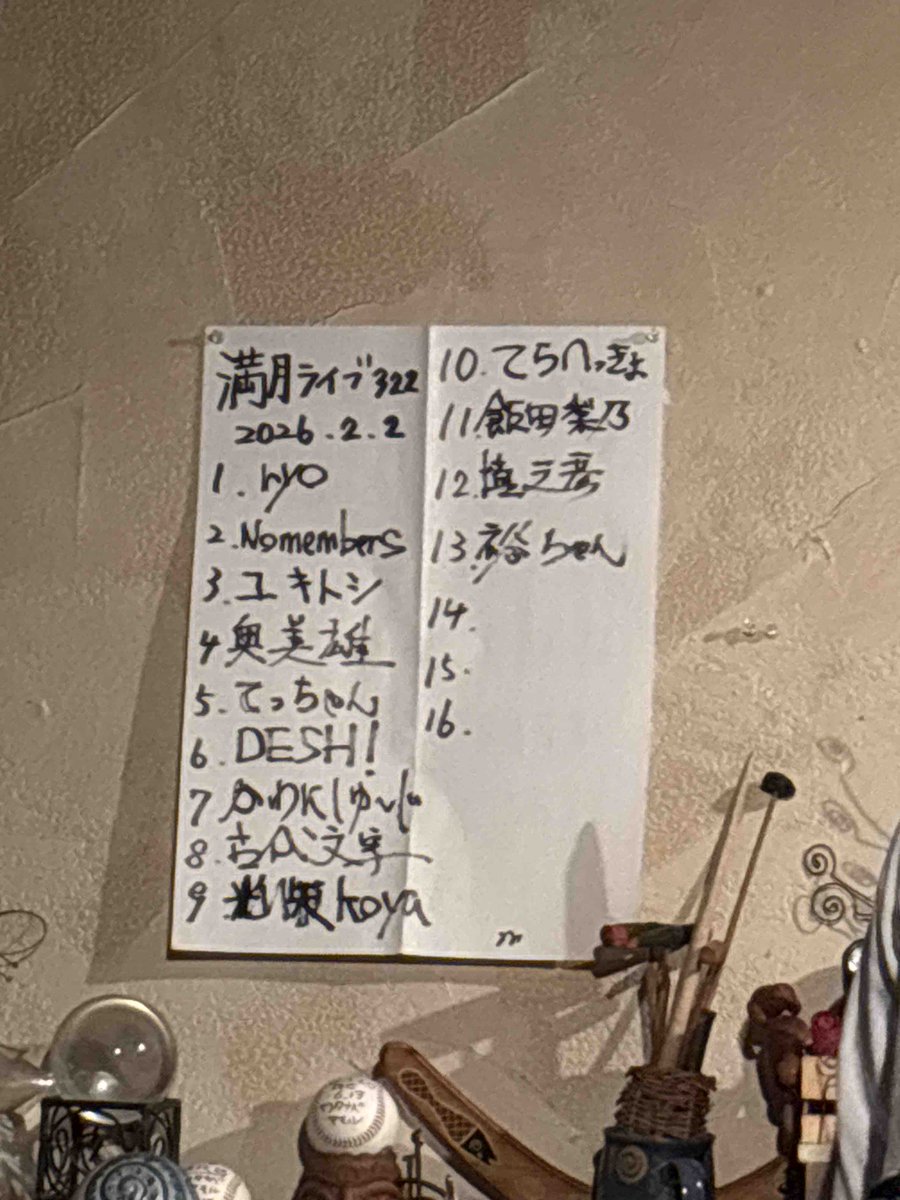 満月ライブ322
2026.2.2
1. ryo
2. Nomembers
3. ユキトシ
4 奥美雄
5. てっちゃん
6. DESH!
7 かわKしゅんじ
8. 古代文字
9 koya
10. てらへっきょ
11. 飯田梨乃
12. 慎之吾
13. 裕ちゃん
14.
15.
16.